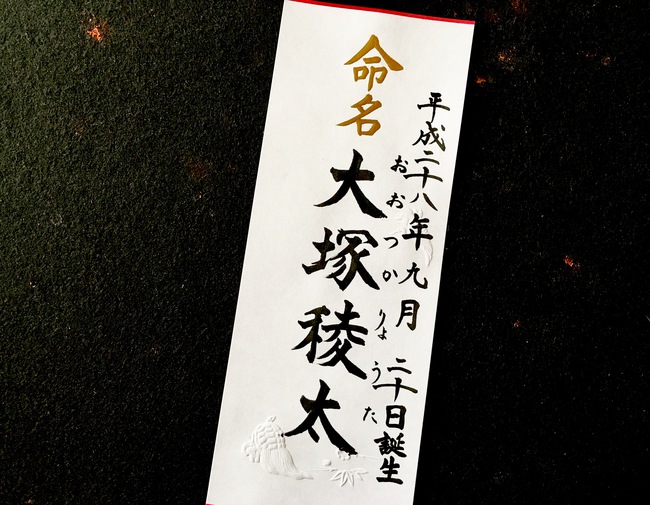 平成二十八年九月二十日誕生
命名
大塚稜太
おおつかりょうた